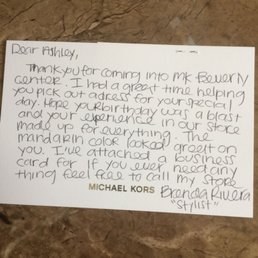 Dear Ashley,
Thank you for coming into MK Beverly
center. I had a great time helping
you pick out a dress for your special
day. Hope your birthday was a blast
and your experience in our store
made up for everything. The
mandarin color looked great on
you. I've attached a business
card for if you ever need any
thing feel free to call my store
MICHAEL KORS
Brenda Rivera
"Stylist"